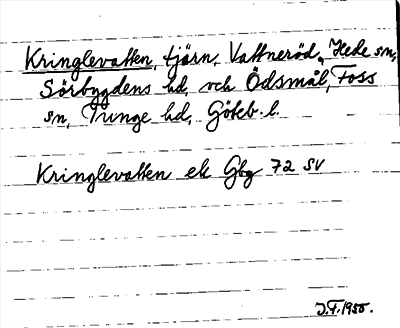 Kringlevatten, tjärn, Vattneröd, Hede sn,
Sörbygdens hd, och Ödsmål, Foss
sn, Tunge hd, Göteb. l.
Kringlevatten ek Gbg 72 SV
J.F. 1950.